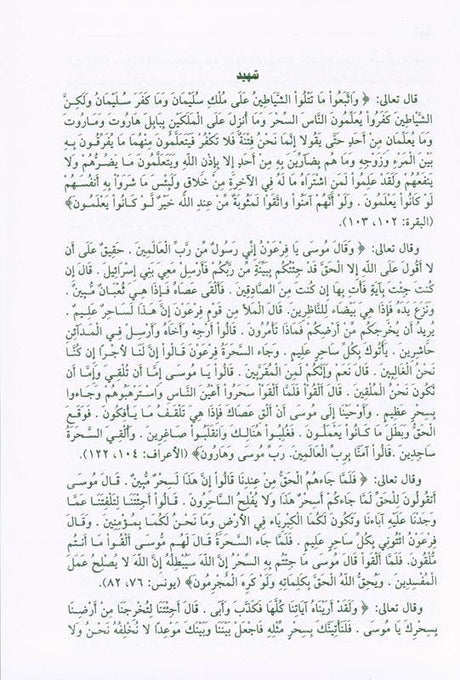 تمهيد
قال تعالى: ﴿ وَاتَّبَعُواْ مَا تَتْلُواْ الشَّيَاطِينُ عَلَى مُلْكِ سُلَيْمَانَ وَمَا كَفَرَ سُلَيْمَانُ وَلَكِنَّ
الشَّيَاطِينَ كَفَرُواْ يُعَلِّمُونَ النَّاسَ السِّحْرَ وَمَا أُنزِلَ عَلَى الْمَلَكَيْنِ بِبَابِلَ هَارُوتَ وَمَارُوتَ
وَمَا يُعَلِّمَانِ مِنْ أَحَدٍ حَتَّى يَقُولا إِنَّمَا نَحْنُ فِتْنَةٌ فَلا تَكْفُرْ فَيَتَعَلَّمُونَ مِنْهُمَا مَا يُفَرِّقُونَ بِهِ
بَيْنَ الْمَرْءِ وَزَوْجِهِ وَمَا هُم بِضَارِّينَ بِهِ مِنْ أَحَدٍ إِلا بِإِذْنِ اللَّهِ وَيَتَعَلَّمُونَ مَا يَضُرُّهُمْ وَلا
يَنفَعُهُمْ وَلَقَدْ عَلِمُواْ لَمَنِ اشْتَرَاهُ مَا لَهُ فِي الآخِرَةِ مِنْ خَلاقٍ وَلَبِئْسَ مَا شَرَوْاْ بِهِ أَنفُسَهُمْ
لَوْ كَانُواْ يَعْلَمُونَ . وَلَوْ أَنَّهُمْ آمَنُواْ واتَّقَوْا لَمَثُوبَةٌ مِّنْ عِندِ اللَّه خَيْرٌ لَّوْ كَانُواْ يَعْلَمُونَ﴾
(البقرة: ١٠٢، ١٠٣).
وقال تعالى: ﴿ وَقَالَ مُوسَى يَا فِرْعَوْنُ إِنِّي رَسُولٌ مِّن رَّبِّ الْعَالَمِينَ . حَقِيقٌ عَلَى أَن
لا أَقُولَ عَلَى اللَّهِ إِلا الْحَقَّ قَدْ جِئْتُكُم بِبَيِّنَةٍ مِّن رَّبِّكُمْ فَأَرْسِلْ مَعِيَ بَنِي إِسْرَائِيلَ . قَالَ إِن
كُنتَ جِئْتَ بِآيَةٍ فَأْتِ بِهَا إِن كُنتَ مِنَ الصَّادِقِينَ . فَأَلْقَى عَصَاهُ فَإِذَا هِيَ ثُعْبَانٌ مُّبِينٌ .
وَنَزَعَ يَدَهُ فَإِذَا هِيَ بَيْضَاء لِلنَّاظِرِينَ. قَالَ الْمَلأُ مِن قَوْمِ فِرْعَوْنَ إِنَّ هَذَا لَسَاحِرٌ عَلِيمٌ .
يُرِيدُ أَن يُخْرِجَكُم مِّنْ أَرْضِكُمْ فَمَاذَا تَأْمُرُونَ . قَالُواْ أَرْجِهْ وَأَخَاهُ وَأَرْسِلْ فِي الْمَدَآئِنِ
حَاشِرِينَ . يَأْتُوكَ بِكُلِّ سَاحِرٍ عَلِيمٍ . وَجَاء السَّحَرَةُ فِرْعَوْنَ قَالُواْ إِنَّ لَنَا لأَجْرًا إِن كُنَّا
نَحْنُ الْغَالِبِينَ . قَالَ نَعَمْ وَإِنَّكُمْ لَمِنَ الْمُقَرَّبِينَ . قَالُواْ يَا مُوسَى إِمَّا أَن تُلْقِيَ وَإِمَّا أَن
نَّكُونَ نَحْنُ الْمُلْقِينَ . قَالَ أَلْقُواْ فَلَمَّا أَلْقَوْاْ سَحَرُواْ أَعْيُنَ النَّاسِ وَاسْتَرْهَبُوهُمْ وَجَاءوا
بِسِحْرٍ عَظِيمٍ . وَأَوْحَيْنَا إِلَى مُوسَى أَنْ أَلْقِ عَصَاكَ فَإِذَا هِيَ تَلْقَفُ مَا يَأْفِكُونَ . فَوَقَعَ
الْحَقُّ وَبَطَلَ مَا كَانُواْ يَعْمَلُونَ . فَغُلِبُواْ هُنَالِكَ وَانقَلَبُواْ صَاغِرِينَ . وَأُلْقِيَ السَّحَرَةُ
سَاجِدِينَ .قَالُواْ آمَنَّا بِرِبِّ الْعَالَمِينَ. رَبِّ مُوسَى وَهَارُونَ﴾ (الأعراف: ١٠٤، ١٢٢).
وقال تعالى: ﴿ فَلَمَّا جَاءهُمُ الْحَقُّ مِنْ عِندِنَا قَالُواْ إِنَّ هَذَا لَسِحْرٌ مُّبِينٌ . قَالَ مُوسَى
أَتقُولُونَ لِلْحَقِّ لَمَّا جَاءكُمْ أَسِحْرٌ هَذَا وَلاَ يُفْلِحُ السَّاحِرُونَ . قَالُواْ أَجِئْتَنَا لِتَلْفِتَنَا عَمَّا
وَجَدْنَا عَلَيْهِ آبَاءنَا وَتَكُونَ لَكُمَا الْكِبْرِيَاء فِي الأَرْضِ وَمَا نَحْنُ لَكُمَا بِمُؤْمِنِينَ . وَقَالَ
فِرْعَوْنُ ائْتُونِي بِكُلِّ سَاحِرٍ عَلِيمٍ . فَلَمَّا جَاء السَّحَرَةُ قَالَ لَهُم مُّوسَى أَلْقُواْ مَا أَنتُم
مُّلْقُونَ. فَلَمَّا أَلْقَواْ قَالَ مُوسَى مَا جِئْتُم بِهِ السِّحْرُ إِنَّ اللَّهَ سَيُبْطِلُهُ إِنَّ اللَّهَ لاَ يُصْلِحُ عَمَلَ
الْمُفْسِدِينَ . وَيُحِقُّ اللَّهُ الْحَقَّ بِكَلِمَاتِهِ وَلَوْ كَرِهَ الْمُجْرِمُونَ﴾ (يونس: ٧٦، ٨٢).
وقال تعالى: ﴿ وَلَقَدْ أَرَيْنَاهُ آيَاتِنَا كُلَّهَا فَكَذَّبَ وَأَبَى . قَالَ أَجِئْتَنَا لِتُخْرِجَنَا مِنْ أَرْضِنَا
بِسِحْرِكَ يَا مُوسَى . فَلَنَأْتِيَنَّكَ بِسِحْرٍ مِّثْلِهِ فَاجْعَلْ بَيْنَنَا وَبَيْنَكَ مَوْعِدًا لا نُخْلِفُهُ نَحْنُ وَلا